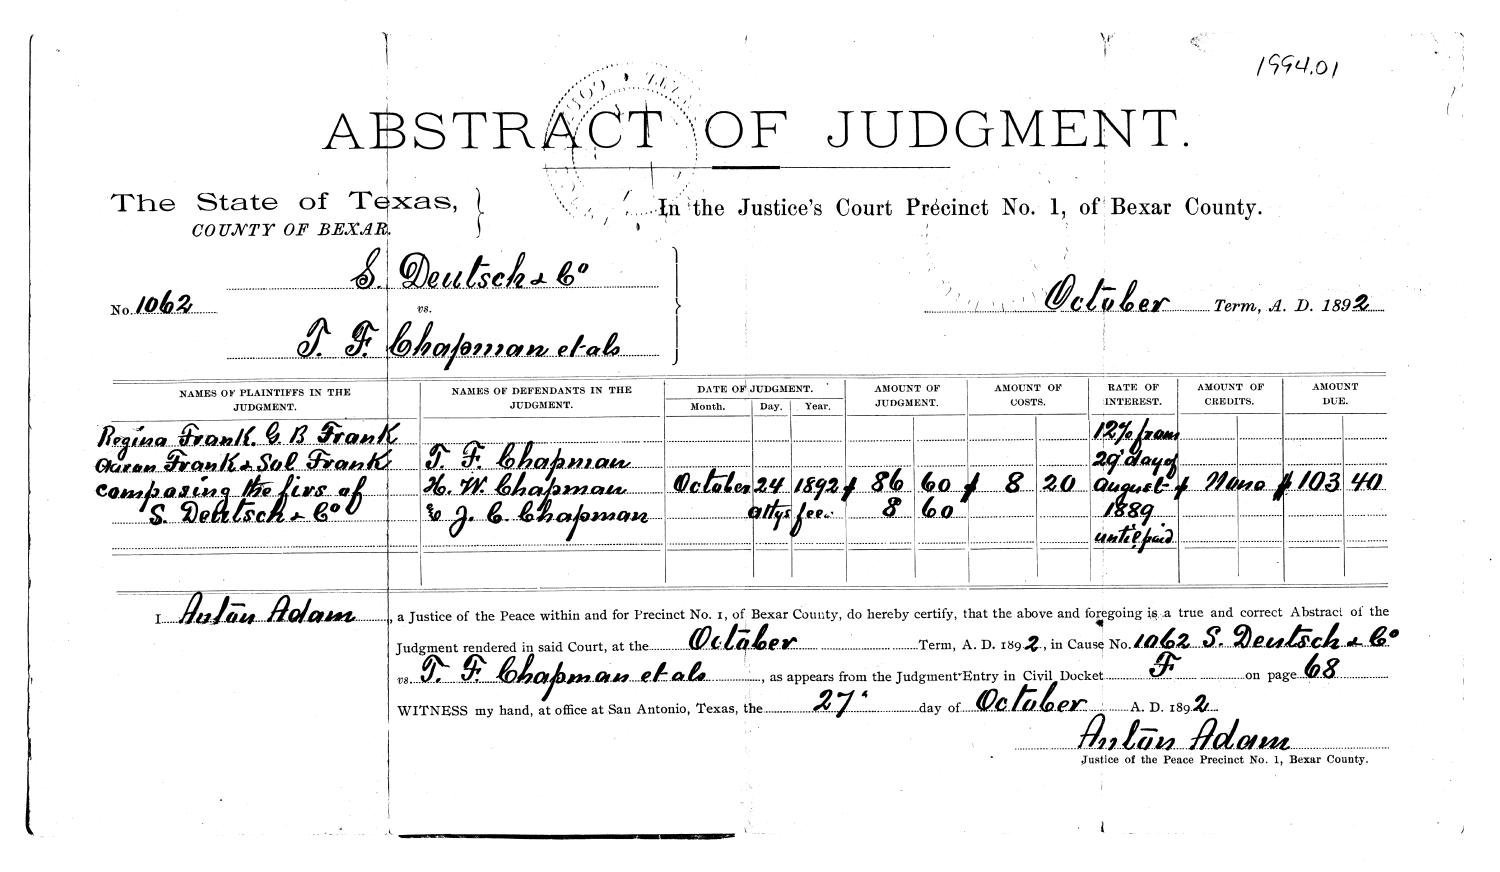 1994.01
ABSTRACT OF JUDGMENT.
The State of Texas,
COUNTY OF BEXAR.
In the Justice's Court Precinct No. 1, of Bexar County.
S. Deutsch & Co
No. 1062
vs.
October Term, A. D. 1892
T. F. Chapman et als
NAMES OF PLAINTIFFS IN THE JUDGMENT.
NAMES OF DEFENDANTS IN THE JUDGMENT.
DATE OF JUDGMENT.
Month. Day. Year.
AMOUNT OF JUDGMENT.
AMOUNT OF COSTS.
RATE OF INTEREST.
AMOUNT OF CREDITS.
AMOUNT DUE.
Regina Frank. G B Frank 12% from
Aaron Frank & Sol Frank T. F. Chapman 29" day of
composing the firs of H. W. Chapman October 24 1892 $ 86 60 $ 8 20 August $ None $ 103 40
S. Deutsch & Co & J. C. Chapman attys fee. 8 60 1889
until paid
I Anton Adam, a Justice of the Peace within and for Precinct No. 1, of Bexar County, do hereby certify, that the above and foregoing is a true and correct Abstract of the
Judgment rendered in said Court, at the October Term, A. D. 1892, in Cause No. 1062 S. Deutsch & Co
vs. T. F. Chapman et als, as appears from the Judgment Entry in Civil Docket F on page 68
WITNESS my hand, at office at San Antonio, Texas, the 27" day of October A. D. 1892
Anton Adam
Justice of the Peace Precinct No. 1, Bexar County.